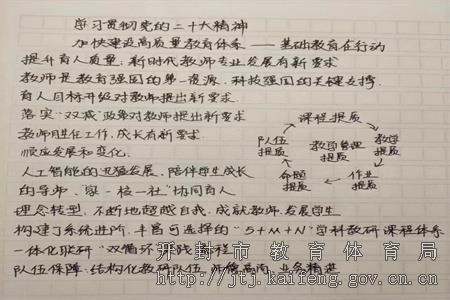 学习贯彻党的二十大精神
加快建设高质量教育体系——基础教育在行动
提升育人质量:新时代教师专业发展有新要求
教师是教育强国的第一资源,科技强国的关键支撑
育人目标升级对教师提出新要求
落实“双减”政策对教师提出新要求
教师胜任工作,成长有新要求
顺应发展和变化
人工智能的迅猛发展,陪伴学生成长
的导师、“家-校-社”协同育人
理念转型,不断地超越自我,成就教师,发展学生
构建习系统进阶,丰富可选择的“5+M+N”学科教研课程体系
一体化联研“双循环”实践流程
队伍保障:结构化教研队伍,师德高尚,业务精进
课程提质
队伍提质
教学管理提质
教学提质
命题提质
作业提质
开封市教育体育局
http://jtj.kaifeng.gov.cn